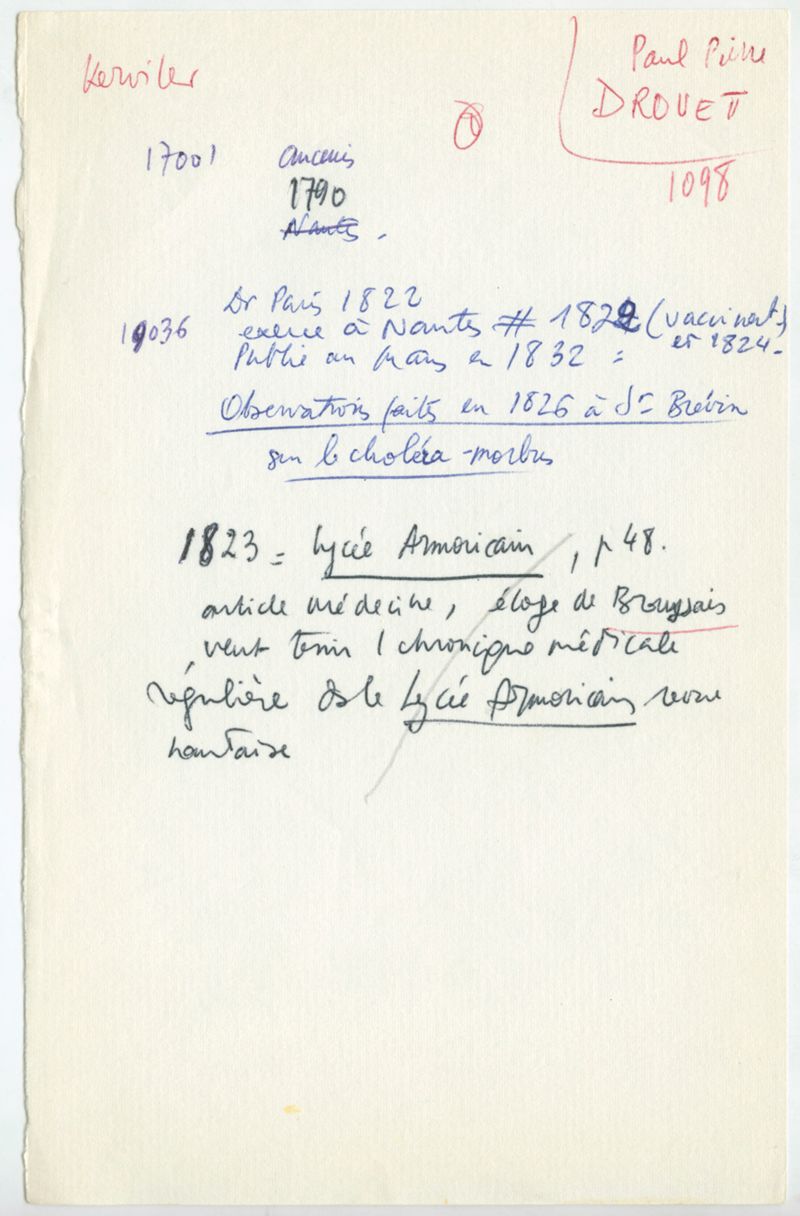 Kerviler
Paul Pierre
DROUET
1098
17001 Ancenis
1790
Nantes.
Dr Paris 1822
19036 exerce à Nantes # 1822 (vaccinat.)
et 1824-
Publie au Mans en 1832 =
Observations faites en 1826 à St Brévin
sur le choléra-morbus
1823 = Lycée Armoricain, p 48.
article médecine, éloge de Broussais
veut tenir 1 chronique médicale
régulière ds le Lycée Armoricain, revue
nantaise